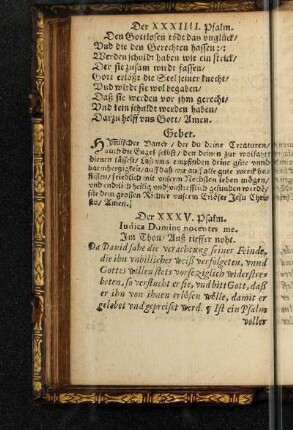 Der XXXIIII. Psalm.
Den Gottlosen tödt das unglück/
Vnd die den Gerechten hassen:/:
Werden schuldt haben wie ein strick/
Der sie zusam wirdt fassen/
Gott erlößt die Seel seiner knecht/
Vnd wirdt sie wol begaben/
Daß sie werden vor jhm gerecht/
Vnd kein schuldt werden haben/
Darzu helff vns Gott/ Amen.
Gebet.
Himlischer Vater/ der du deine Creaturen/
auch die Engel selbst/ den deinen zur wolfart
dienen lässest/ Laß vns empfinden deine güte vnnd
barmhertzigkeit/ auff daß wir
friedlich mit vnserm Nechsten leben mögen/
vnd endtlich heilig vnd vnsträfflich gefunden werdē/
für dem grossen Richter vnserm Erlöser Jesu Chri
sto/ Amen.
Der XXXV. Psalm.
Iudica Domine nocentes me.
Im Thon/ Auß tieffer noht.
Da David sahe die verachtung seiner Feinde,
die ihn vnbillicher weiß verfolgeten, vnnd
Gottes willen stets vorsetziglich widerstre-
beten, so verflucht er sie, vnd bitt Gott, daß
er ihn von ihnen erlösen wölle, damit er
gelobet vnd gepreiset werd. ¶ Ist ein Psalm
voller